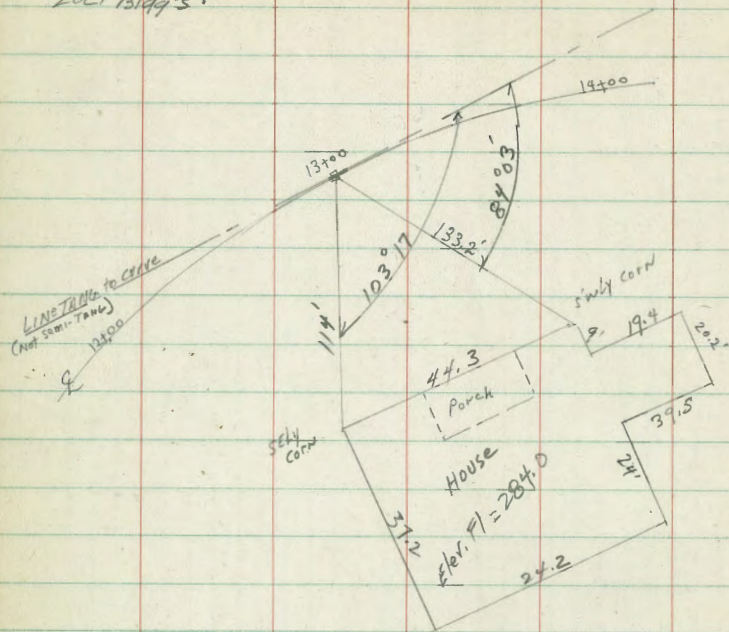 14+00
13+00
84°03'
103°17
133.2'
LINE TANG to curve
(Not semi-TANG)
12+00
℄
114'
s'wly corn
9.
19.4
20.2'
44.3
Porch
39.5
SELY
CORN
House
24'
Elev. Fl = 284.0
37.2
24.2